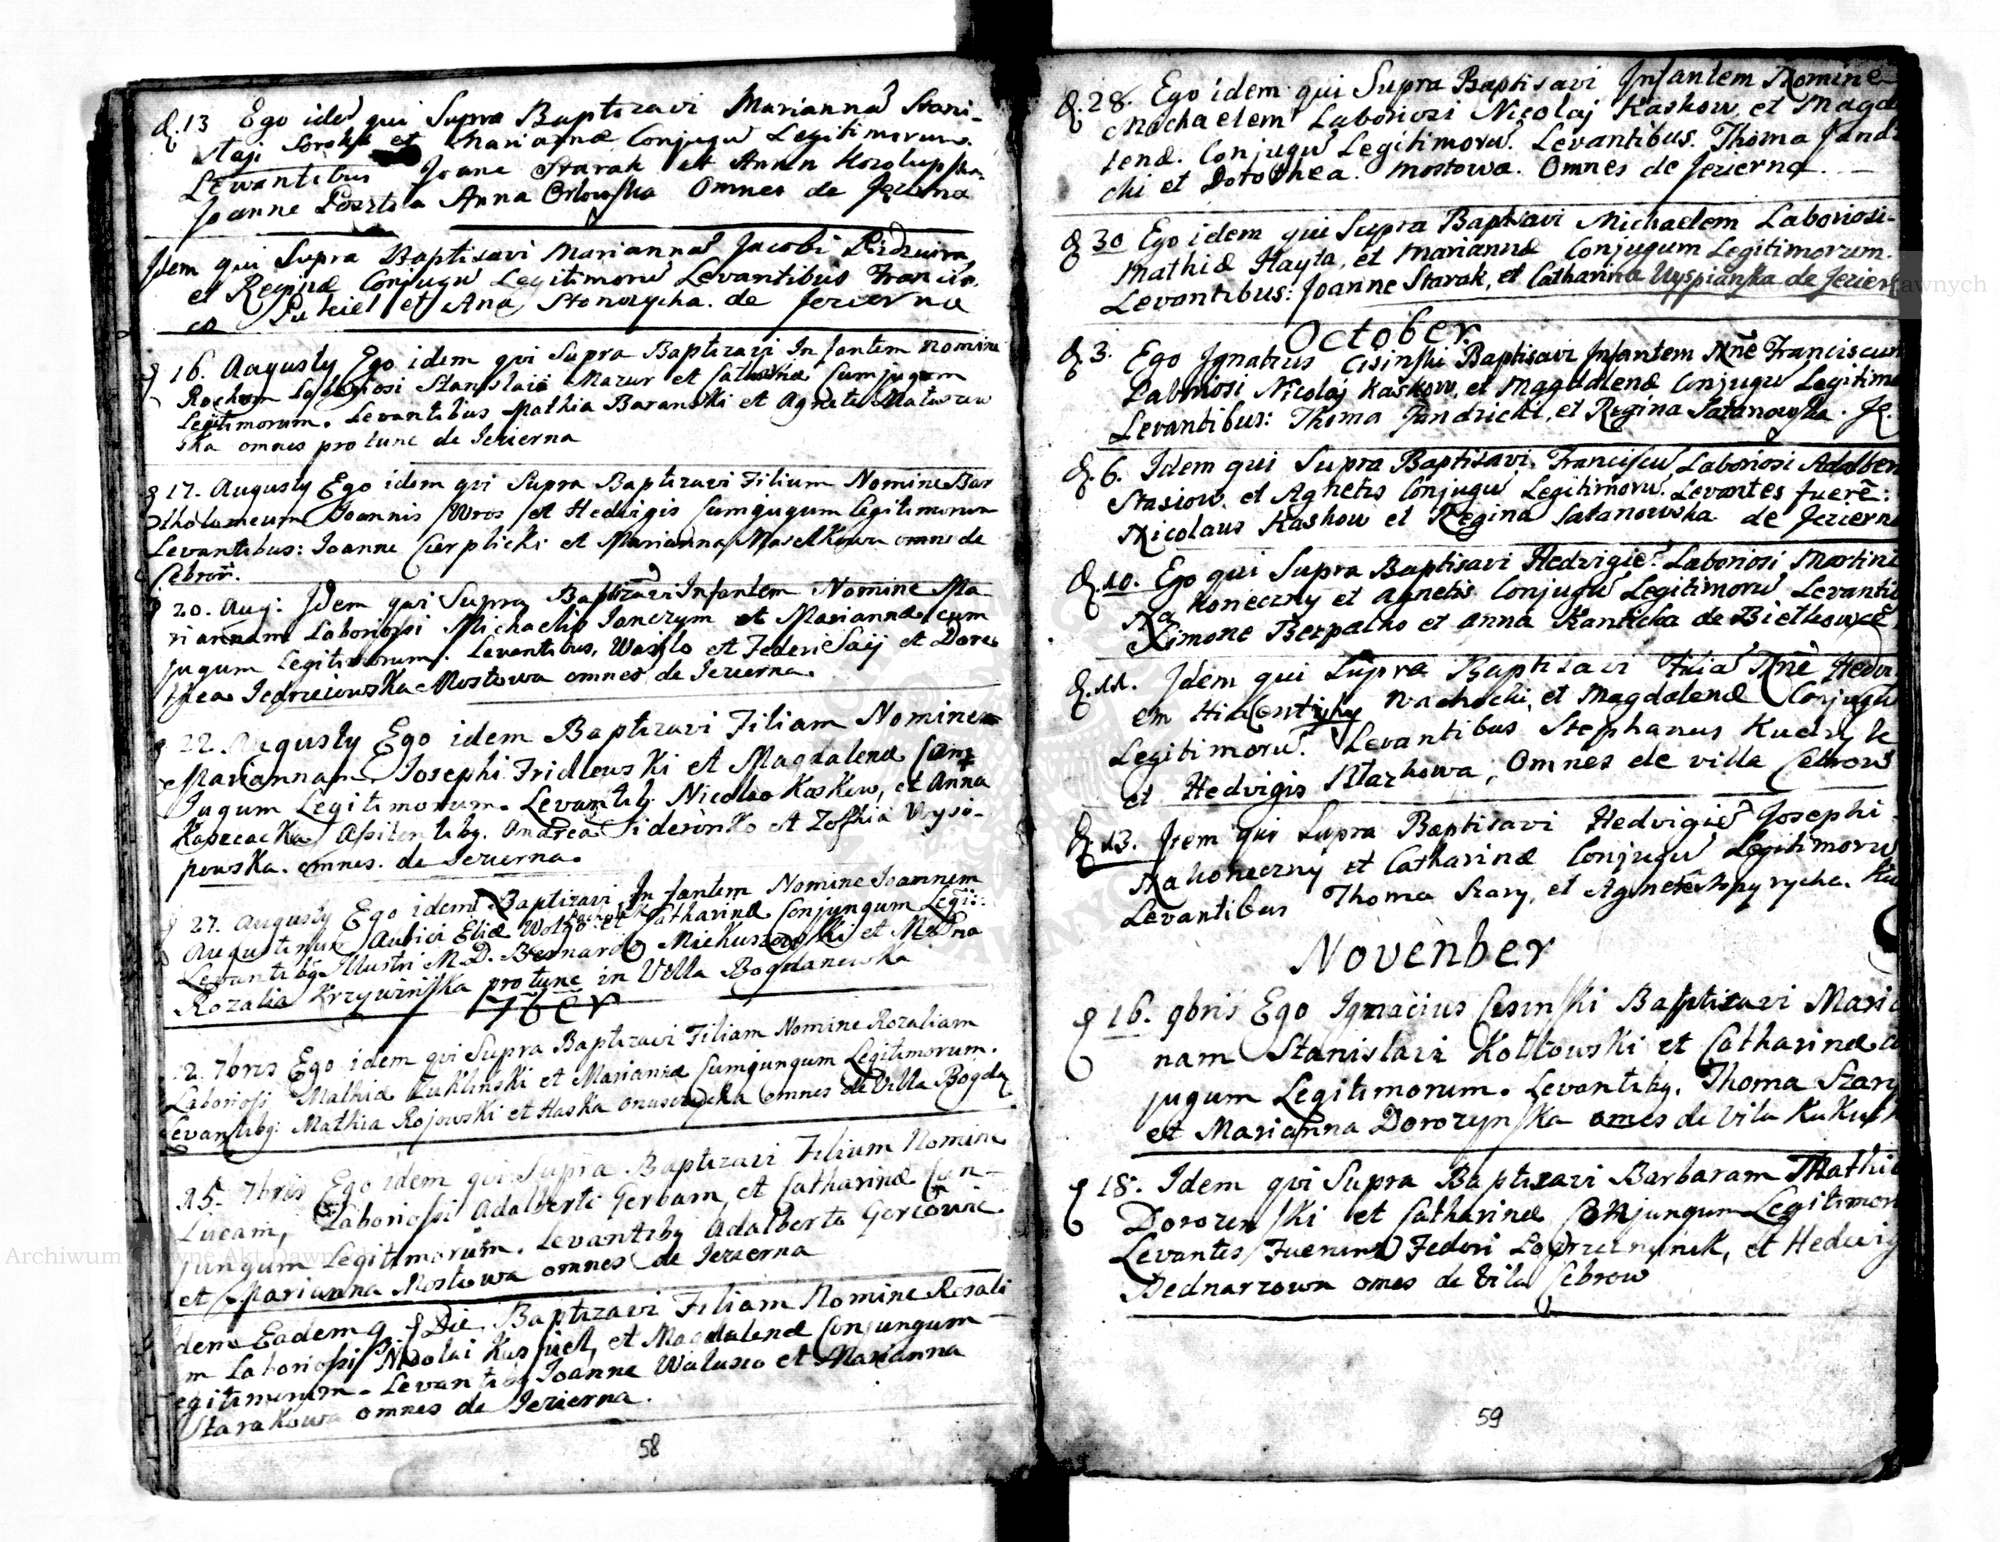 d. 13 Ego idē qui Supra Baptizavi Mariannā Stani-
slaji et Mariannæ Conjugū Legitimorum.
Levantibus Joane Starak et Anna
Joanne Anna Orlowska Omnes de Jezierna
Idem qui Supra Baptisavi Mariannā Jacobi
et Reginæ Conjugū Legitimorū Levantibus Francis-
co et Ana de Jezierna
d 16. Augusty Ego idem qvi Supra Baptizavi Infantem nomine
Rochum Laboriosi Stanislaii Mazur et Catharinæ Cumjugum
Legitimorum. Levantibus Mathia Baranski et Agneta Matusew
ska omnes pro tunc de Jezierna
d 17. Augusty Ego idem qvi Supra Baptizavi Filium Nomine Bar
tholomeum Joannis Wros et Hedvigis Cumjugum legitimorum
Levantibus: Joanne Cierplicki et Marianna Maselkowa omnes de
Cebrow.
20. Aug: Idem qui Supra Baptizavi Infantem Nomine Ma
riannam Laboriossi Michaelis Janczym et Mariannæ cum
jugum Legitimorum. Levantibus, Wasylo et Federi et Doro
thea Jedrzeiowska Mostowa omnes de Jezierna.
22. Augusty Ego idem Baptizavi Filiam Nomine
Mariannam Josephi Fridlewski et Magdalenæ Con
jugum Legitimorum. Levantibg. Nicolao Koskow, et Anna
Kaszcacka Assitentibg. Andrea Sideronko et Zofhia Wysi-
powska. omnes. de Jezierna.
27. Augusty Ego idem Baptizavi Infantem Nomine Joannem
Augustinum Aulici Eliæ et Catharinæ Conjungum Legit:
Levantibg Illustri M. D. Bernardo Mickuszewski et M
Rozalia Krzywinska pro tunc in Villa Bogdanowka
7ber
12. 7bris Ego idem qvi Supra Baptizavi Filiam Nomine Rozaliam
Laboriossi Mathiæ Kuklinski et Mariannæ Cumjungum Legitimorum.
Levantibg: Mathia Rojowski et Haska omnes de Villa Bogda
15. 7bris Ego idem qvi Supra Baptizavi Filium Nomine
Lucam, Laboriossi Adalberti Gerbam et Catharinæ Con-
jungum Legitimorum. Levantibg Adalberto
et Marianna Mostowa omnes de Jezierna
Idem Eadem Die Baptizavi Filiam Nomine Rosali
m Laboriossi Nicolai et Magdalenæ Conjungum
egitimorum. Levantibg Joanne Walusio et Marianna
Starakowa omnes de Jezierna.
58
d. 28. Ego idem qui Supra Baptisavi Infantem Nomine
Michaelem Laboriosi Nicolaj Kaskow et Magda
lenæ. Conjugū Legitimorū. Levantibus. Thoma Jandri
chi et Dorothea. Mostowa. Omnes de Jezierna.
d 30 Ego idem qui Supra Baptisavi Michaelem Laboriosi-
Mathiæ Hayta, et Mariannæ Conjugum Legitimorum.
Levantibus: Joanne Starak, et Catharina Wyspianska de Jezier
October
d 3. Ego Ignatius Cisinski Baptisavi Infantem Nnē Franciscum
Laboriosi Nicolaj Kaskow, et Magdalenæ Conjugū Legitim
Levantibus: Thoma Jandricki, et Regina Satanowska. Je.
d. 6. Idem qui Supra Baptisavi Franciscū Laboriosi Adalber
Stasiow. et Agnetis Conjugū Legitimorū. Levantes fuerē:
Nicolaus Kaskow et Regina Satanowska de Jezierna
d. 10. Ego qui Supra Baptisavi Hedvigiē. Laboriosi Martini
Na Koneczny et Agnetis Conjugū Legitimorū Levanti
Simone Berpalko et Anna Kanticka de Bietkowcē
d. 11. Idem qui Supra Baptisavi Filiā Nnē Hedvi
em Nachocki, et Magdalenæ Conjugū
Legitimorū. Levantibus Stephanus Kudryk
et Hedvigis Blazkowa, Omnes de villa Cebrow
d. 13. Item qui Supra Baptisavi Hedvigiē Josephi
Na Koneczny et Catharinæ Conjugū Legitimorū
Levantibus Thoma Szary, et Agnete Stopyrycha. Ku
November
d 16. 9bris Ego Ignacius Cesinski Baptizavi Maria
nam Stanislavi Kotlowski et Catharinæ co
jugum Legitimorum. Levantibg. Thoma Szary
et Marianna Dorozynska omes de Vila Kukutk
d 18. Idem qvi Supra Baptizavi Barbaram Mathiæ
Dorozenski et Catharinæ Conjungum Legitimor
Levantes Fuerunt Fedori et Hedwig
Bednarzowa omes de Vila Cebrow
59
Archiwum Główne Akt Dawnych